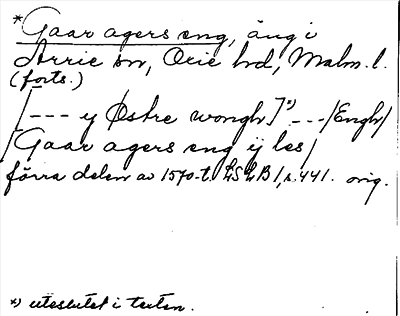 *Gaar agers eng, äng i
Arrie sn, Oxie hd, Malm. l.
(forts.)
[--- y Østre wongh]*) --- /Engh/
/Gaar agers eng ÿ les/
förra delen av 1570-t. LSLB I, s. 441. orig.
*) uteslutet i texten.